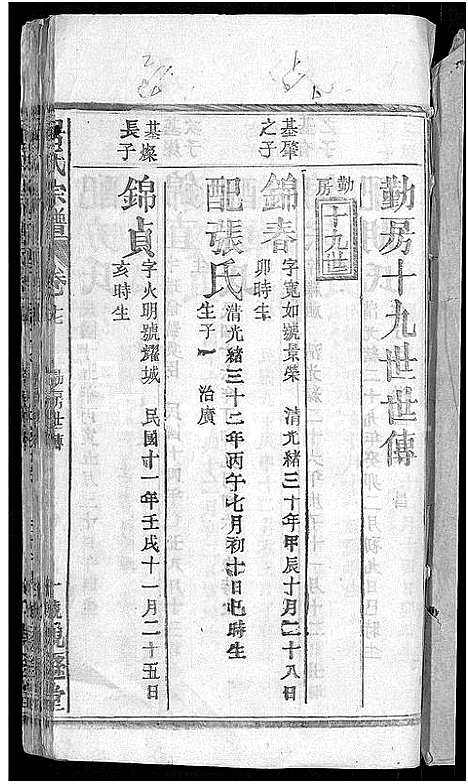 勤房十九世世傳
勤房
十九世
基肇之子
錦春 字寬如號景榮 清光緒三十年甲辰十月二十八日卯時生
配張氏 清光緒三十二年丙午七月初十日巳時生
生子一 治廣
基燦長子
錦貞 字火明號耀城 民國十一年壬戌十一月二十五日亥時生
氏宗譜 卷七 勤房世傳 堂